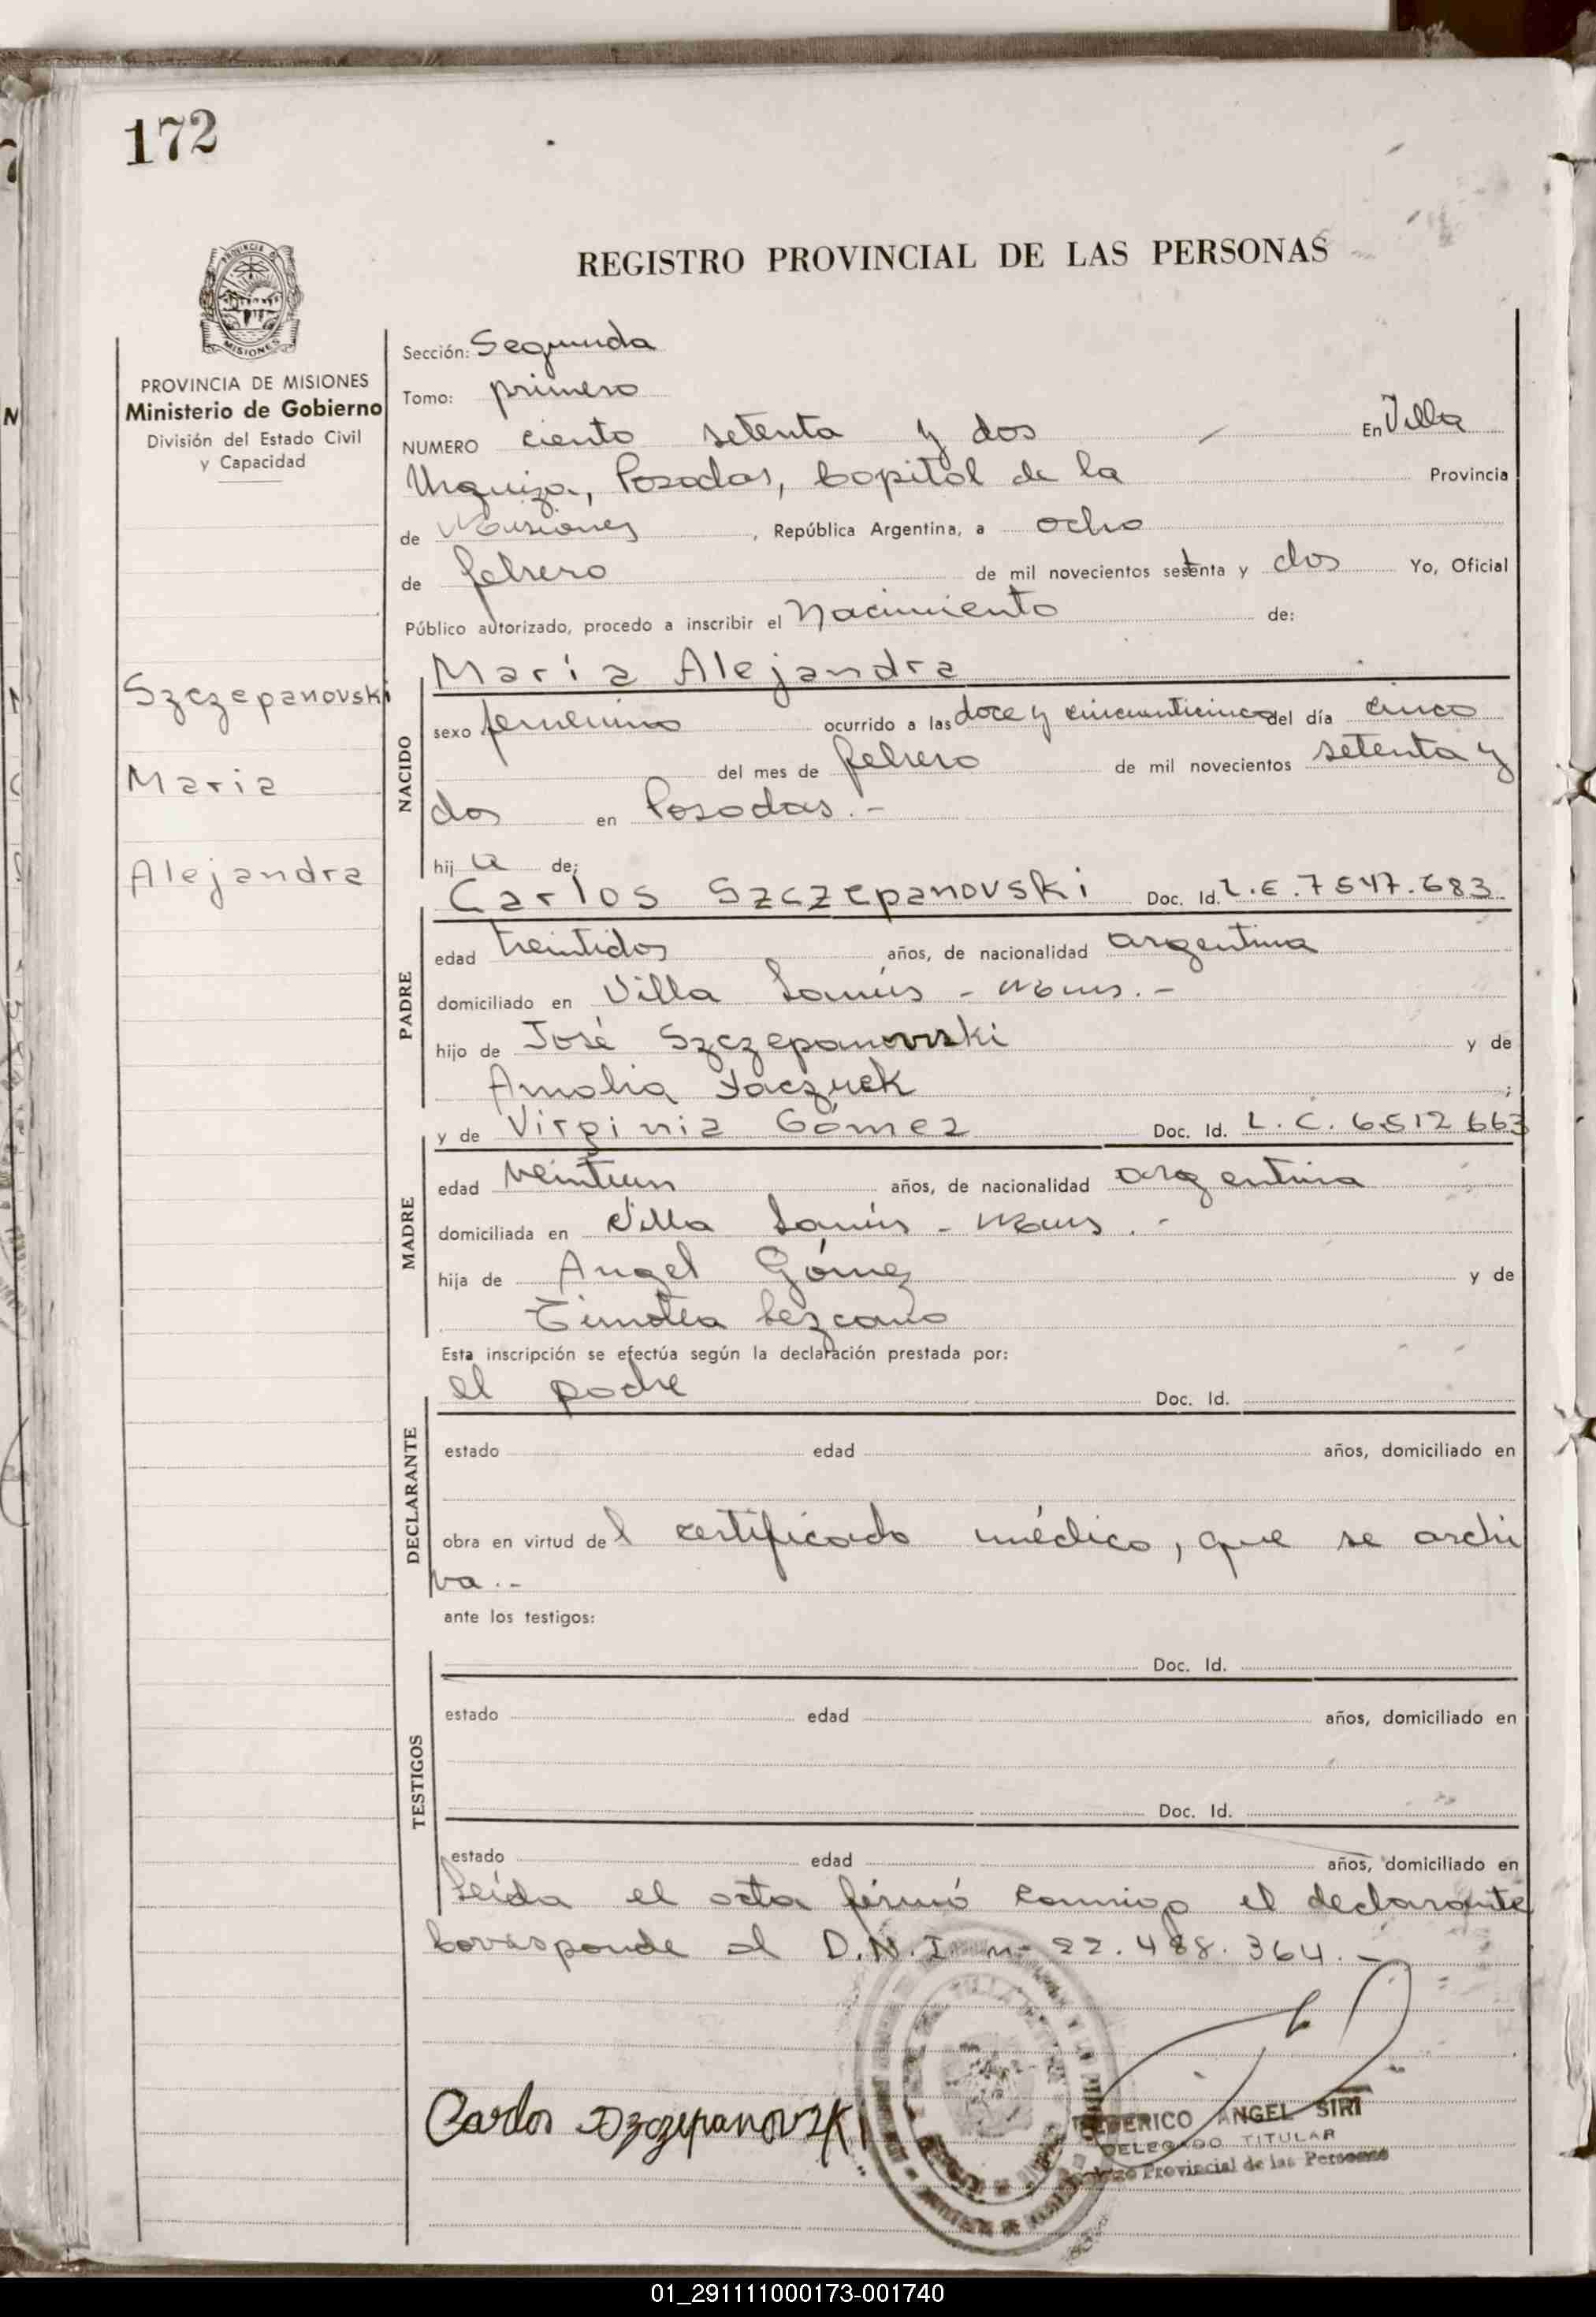 172
PROVINCIA DE MISIONES
Ministerio de Gobierno
División del Estado Civil
y Capacidad
Szczepanovski
Maria
Alejandra
REGISTRO PROVINCIAL DE LAS PERSONAS
Sección: Segunda
Tomo: primero
NUMERO ciento setenta y dos En Villa
Urquiza, Posadas, Capital de la Provincia
de Misiones, República Argentina, a ocho
de febrero de mil novecientos setenta y dos Yo, Oficial
Público autorizado, procedo a inscribir el Nacimiento de:
María Alejandra
NACIDO
sexo femenino ocurrido a las doce y cincuenticinco del día cinco
del mes de febrero de mil novecientos setenta y
dos en Posadas.-
hija de:
Carlos Szczepanovski Doc. Id. L.E. 7547.683
PADRE
edad treintidos años, de nacionalidad argentina
domiciliado en Villa Lanús - Mnes.-
hijo de José Szczepanovski y de
Amalia ;
y de Virginia Gómez Doc. Id. L.C. 6512663
MADRE
edad veintiun años, de nacionalidad argentina
domiciliada en Villa Lanús - Mnes.-
hija de Angel Gómez y de
Timotea Lezcano
Esta inscripción se efectúa según la declaración prestada por:
el padre Doc. Id.
DECLARANTE
estado edad años, domiciliado en
obra en virtud del certificado médico, que se archi
va.-
ante los testigos:
Doc. Id.
TESTIGOS
estado edad años, domiciliado en
Doc. Id.
estado edad años, domiciliado en
Leída el acta firmó conmigo el declarante
Corresponde al D.N.I. n- 22.488.364.-
Carlos Szczepanovski
FEDERICO ANGEL SIRI
DELEGADO TITULAR
Provincial de las Personas
01_291111000173-001740